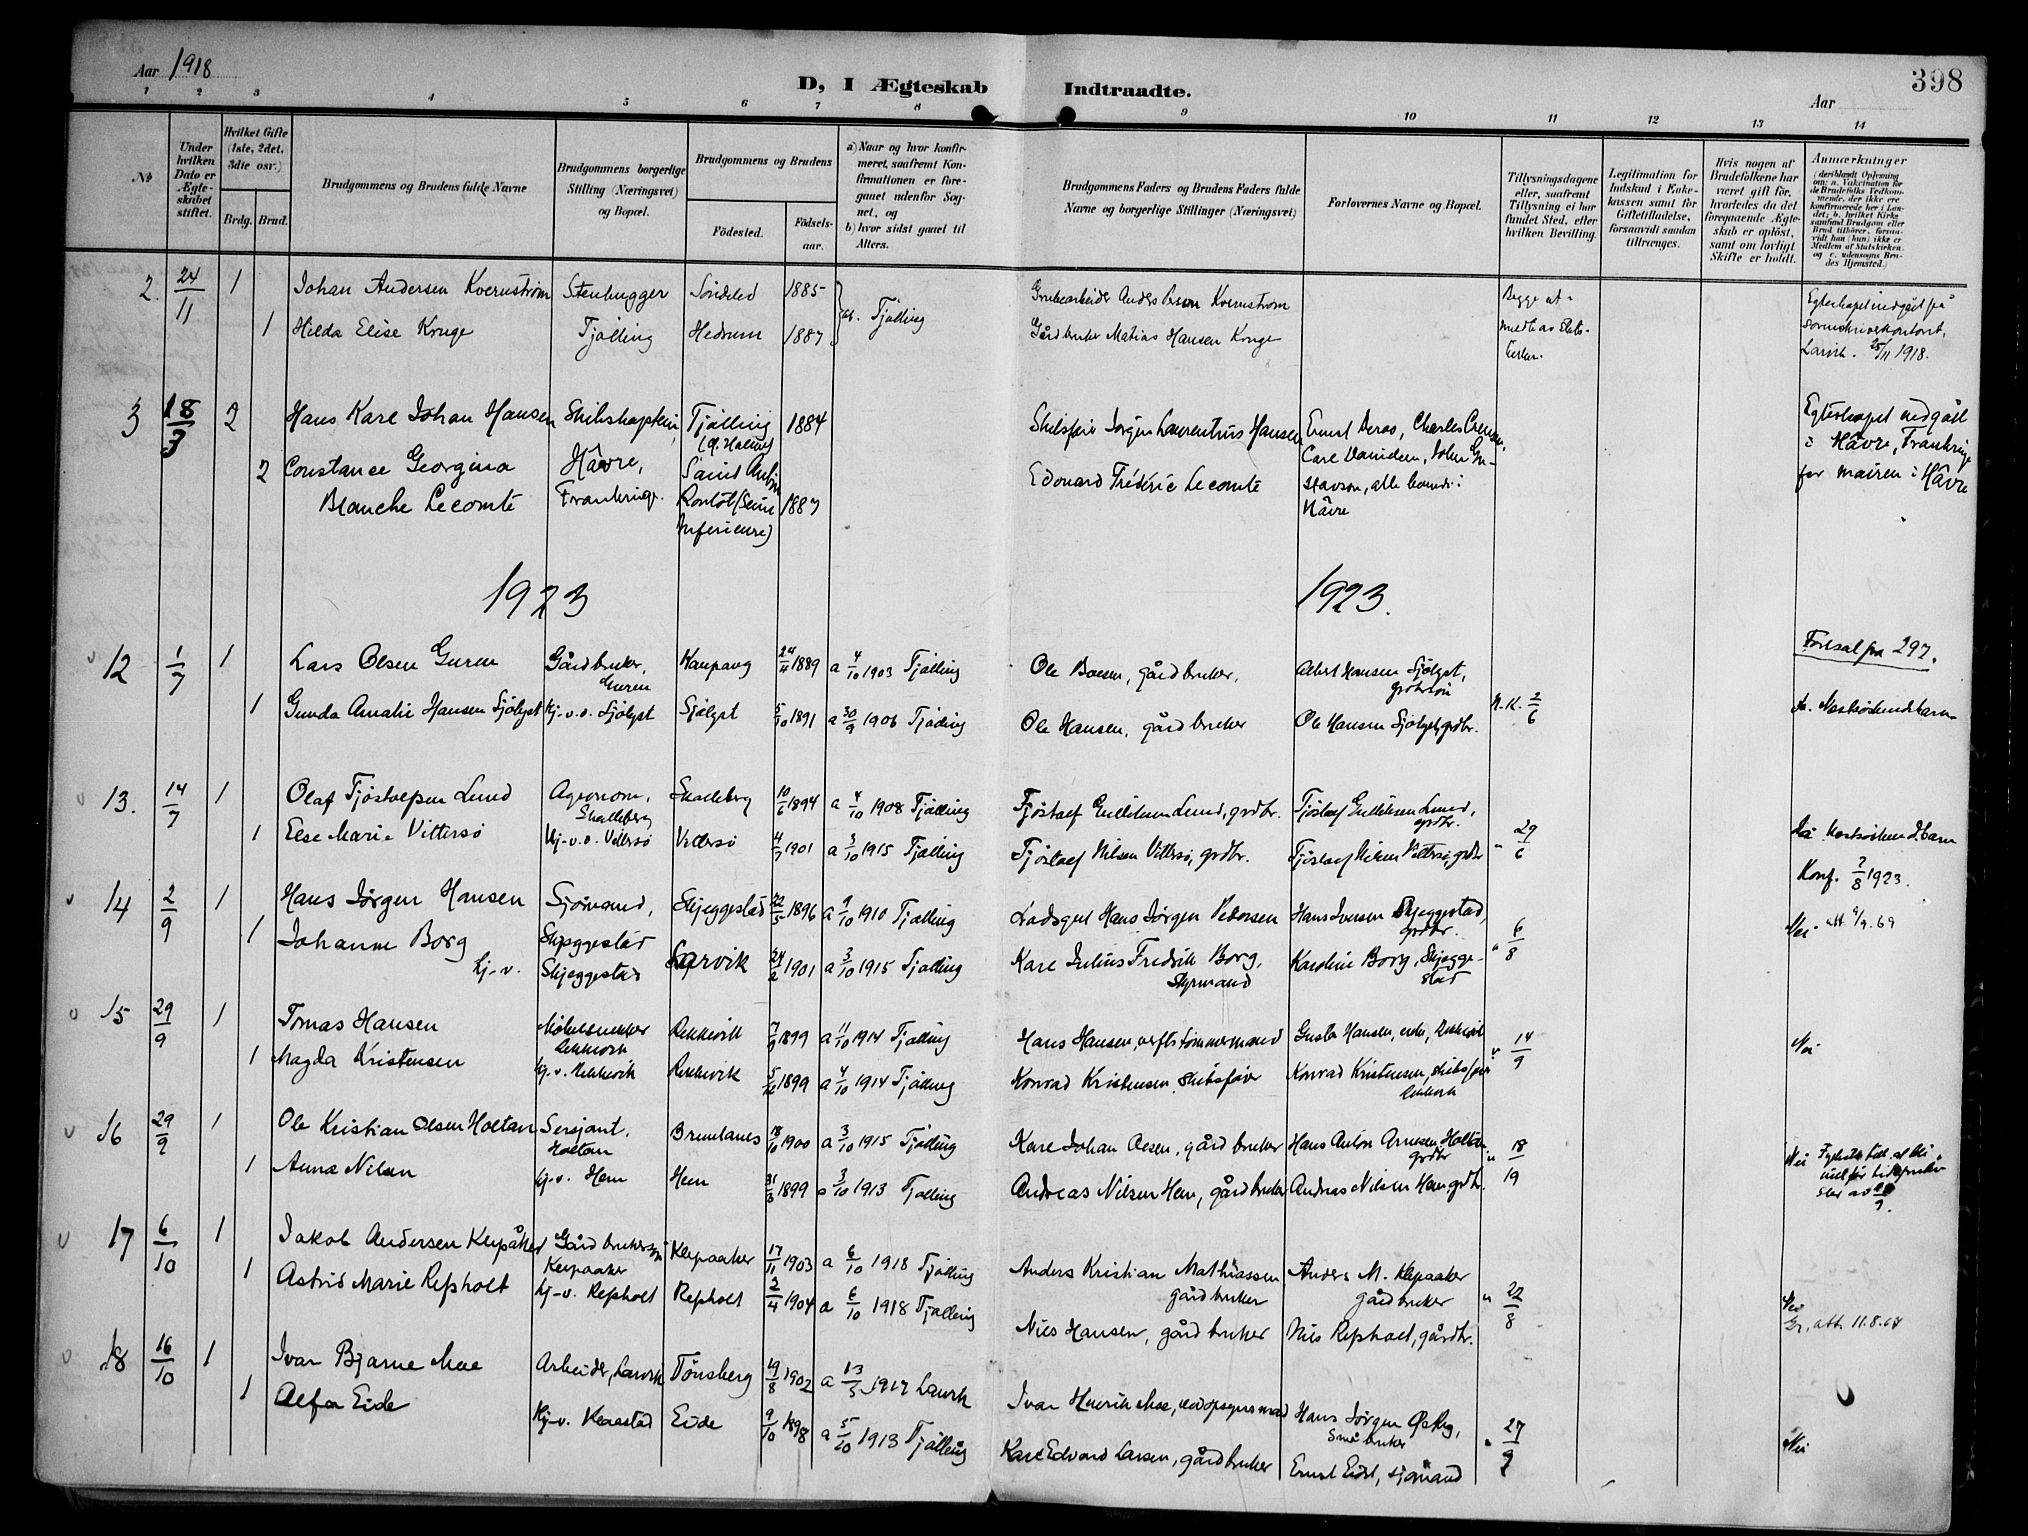 Aar 1918
D, I Ægteskab Indtraadte.
Aar
398
1 2 3 4 5 6 7 8 9 10 11 12 13 14
No
Under hvilken Dato er Ægteskabet stiftet.
Hvilket Gifte (1ste, 2det, 3die osv.)
Brdg. Brud.
Brudgommens og Brudens fulde Navne
Brudgommens borgerlige Stilling (Næringsvei) og Bopæl.
Brudgommens og Brudens
Fødested.
Fødselsaar.
a) Naar og hvor konfirmeret, saafremt Konfirmationen er foregaaet udenfor Sognet, og
b) hvor sidst gaaet til Alters.
Brudgommens Faders og Brudens Faders fulde Navne og borgerlige Stillinger (Næringsvei)
Forlovernes Navne og Bopæl.
Tillysningsdagene eller, saafremt Tillysning ei har fundet Sted, efter hvilken Bevilling.
Legitimation for Indskud i Enkekassen samt for Giftetilladelse, forsaavidt saadan tiltrænges.
Hvis nogen af Brudefolkene har været gift før, hvorledes da det foregaaende Ægteskab er opløst, samt om lovligt Skifte er holdt.
Anmærkninger
2. 24/11 1 Johan Andersen Kvernstrøm Stenhugger Søndeled 1885 Tjølling Grubearbeider Anders Kvernstrøm Begge ut- Egteskapet indgåt på
1 Hilda Elise Kruge Tjølling Hedrum 1887 Gårdbruker Matias Hansen Kruge meldt av Stats- sorenskriverkontoret,
kirken. Larvik. 25/11 1918.
3 18/3 2 Hans Karl Johan Hansen Skibskaptein, Tjølling 1884 Skibsfører Jørgen Laurentius Hansen Ernst Deros, Charles Egteskapet indgått
2 Constance Georgina Hâvre, Saint Carl Davidsen, John i Hâvre, Frankrige
Blanche Lecomte Frankrige. (Seine 1887 Edouard Fréderic Lecomte alle boende i for mairen i Hâvre
Inferieure) Hâvre
1923 1923.
12 1/7 1 Lars Olsen Guren Gårdbruker, Guren Kaupang 24/11 1889 a 4/10 1903 Tjølling Ole Boesen, gårdbruker. Albert Hansen Sjølyst, Forlsal fra 297.
1 Gunda Amalie Hansen Sjølyst kj.v.o. Sjølyst Sjølyst 5/10 1891 a 30/9 1906 Tjølling Ole Hansen, gårdbruker Ole Hansen Sjølyst, grdbr. N.K. 2/6 Ja. Næstsøskendebarn
13. 14/7 1 Olaf Tjøstolfsen Lund Agronom, Skalleberg Skalleberg 10/6 1894 a 4/10 1908 Tjølling Tjøstolf Gulliksen Lund, grdbr. Tjøstolf Gulliksen Lund, grdbr.
1 Else Marie Vittersø kj.v.o. Vittersø Vittersø 4/7 1901 a 3/10 1915 Tjølling Tjøstolf Nilsen Vittersø, grdbr. Tjøstolf Nilsen Vittersø, grdbr " 29/6 Ja. Næstsøskendebarn
Konf. 2/8 1923.
14 2/9 1 Hans Jørgen Hansen Sjømand, Skjeggestad Skjeggestad 22/5 1896 a 9/10 1910 Tjølling Hans Jørgen Pedersen Hans Iversen Skjeggestad, grdbr. Nei att 9/9.69
1 Johanne Borg kj.v. Skjeggestad Larvik 24/2 1901 a 3/10 1915 Tjølling Karl Julius Fredrik Borg, Styrmand Karoline Borg, Skjeggestad " 6/8
15 29/9 1 Tomas Hansen Møbelsnekker Rekkevik Rekkevik 7/9 1899 a 11/10 1914 Tjølling Hans Hansen, verftstømmermand Gusta Hansen, enke, Rekkevik Nei
1 Magda Kristensen kj.v. Rekkevik Rekkevik 5/12 1899 a 4/10 1914 Tjølling Konrad Kristensen, skibsfører Konrad Kristensen, skibsfører Rekkevik " 14/9
16 29/9 1 Ole Kristian Olsen Holtan Sersjant, Holtan Bremsanes 18/10 1900 a 3/10 1915 Tjølling Karl Johan Olsen, gårdbruker Hans Anton Arnesen Holtan grdbr " 18/19 Nei
1 Anna Nilsen kj.v. Hem Hem 31/3 1899 a 3/10 1913 Tjølling Andreas Nilsen Hem, gårdbruker Andreas Nilsen Hem grdbr.
17 6/10 1 Jakob Andersen Klepåker Gårdbrukersøn Klepaaker Klepaaker 17/11 1903 a 6/10 1918 Tjølling Anders Kristian Mathiassen, gårdbruker Anders M. Klepaaker gårdbruker " 22/8
1 Astrid Marie Refsholt kj.v. Refsholt Refsholt 2/4 1904 a 6/10 1918 Tjølling Nils Hansen, gårdbruker Nils Refsholt, gårdbr. Nei
att. 11.8.67
18 16/10 1 Ivar Bjarne Moe Arbeider, Larvik Tønsberg 19/8 1902 a 13/3 1917 Larvik Ivar Henrik Moe, Hans Jørgen Østby, Småbruker
1 Alfa Eide kj.v. Klaastad Eide 9/10 1898 a 5/10 1913 Tjølling Karl Edvard Larsen, gårdbruker Ernst Eide, sjømand " 27/9 Nei